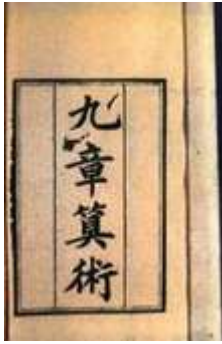 九章算術